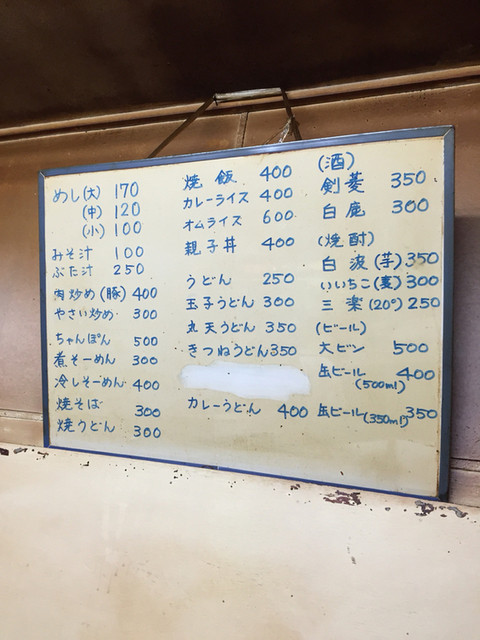 めし(大) 170
(中) 120
(小) 100
みそ汁 100
ぶた汁 250
肉炒め(豚) 400
やさい炒め 300
ちゃんぽん 500
煮そーめん 300
冷しそーめん 400
焼そば 300
焼うどん 300
焼飯 400
カレーライス 400
オムライス 600
親子丼 400
うどん 250
玉子うどん 300
丸天うどん 350
きつねうどん 350
カレーうどん 400
(酒)
剣菱 350
白鹿 300
(焼酎)
白波(芋) 350
いいちこ(麦) 300
三楽(20°) 250
(ビール)
大ビン 500
缶ビール 400
(500ml)
缶ビール(350ml) 350